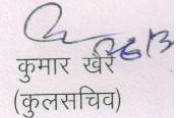 कुमार खैरे
(कुलसचिव)